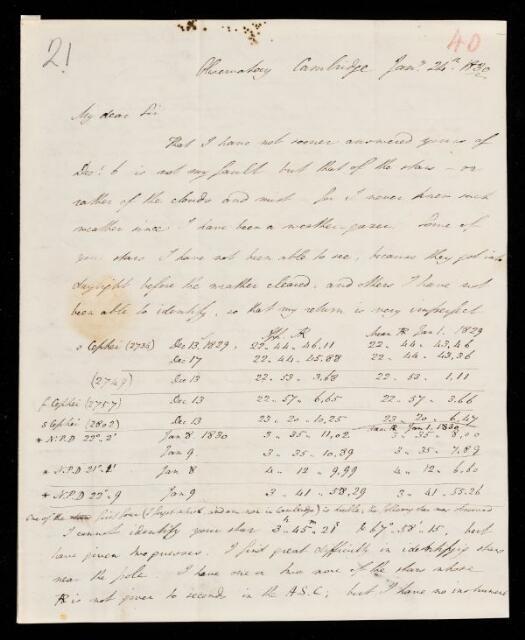 21
40
Observatory Cambridge Jany. 24th. 1830
My dear Sir
That I have not sooner answered yours of
Decr. 6 is not my fault but that of the stars – or
rather of the clouds and mist – for I never knew such
weather since I have been a weather-gazer. Some of
your stars I have not been able to see, because they got into
daylight before the weather cleared, and others I have not
been able to identify, so that my return is very imperfect
App. AR Mean AR Jan 1. 1829
s Cephei (2734) Dec 13. 1829. 22. 44. 46.11 22. 44. 43.46
Dec 17 22. 44. 45.88 22. 44. 43.36
(2749) Dec 13 22. 53. 3.68 22. 53. 1.11
f Cephei (2757) Dec 13 22. 57. 6.65 22. 57. 3.66
s Cephei (2802) Dec 13 23. 20. 10.25 23. 20. 6.47
Mean AR Jan 1. 1830
* N.P.D 22°. 2' Jan 8 1830 3. 35. 11.02 3. 35. 8.00
Jan 9 3. 35. 10.89 3. 35. 7.89
* N.P.D 21°. 2' Jan 8 4. 12. 9.99 4. 12. 6.60
* N.P.D 22°. 9 Jan 9 3. 41. 58.29 3. 41. 55.26
One of the first four (I forget which, and am now in Cambridge) is double, the following star was observed
I cannot identify your star 3h. 45m. 21s & 67°. 58'. 15, but
have given two guesses. I find great difficulty in identifying stars
near the pole. I have one or two more of the stars whose
AR is not given to seconds in the A.S.C; but I have no instrument